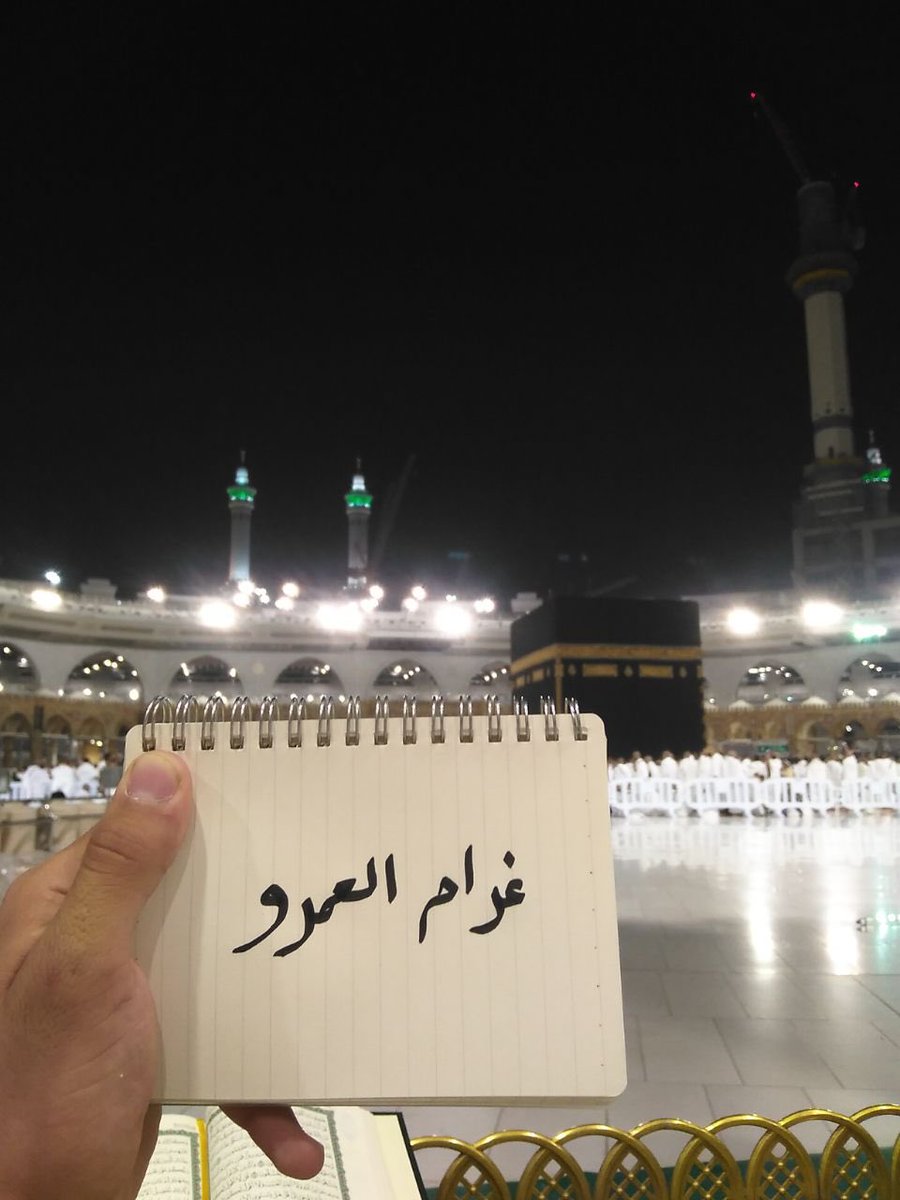 غرام العمرو